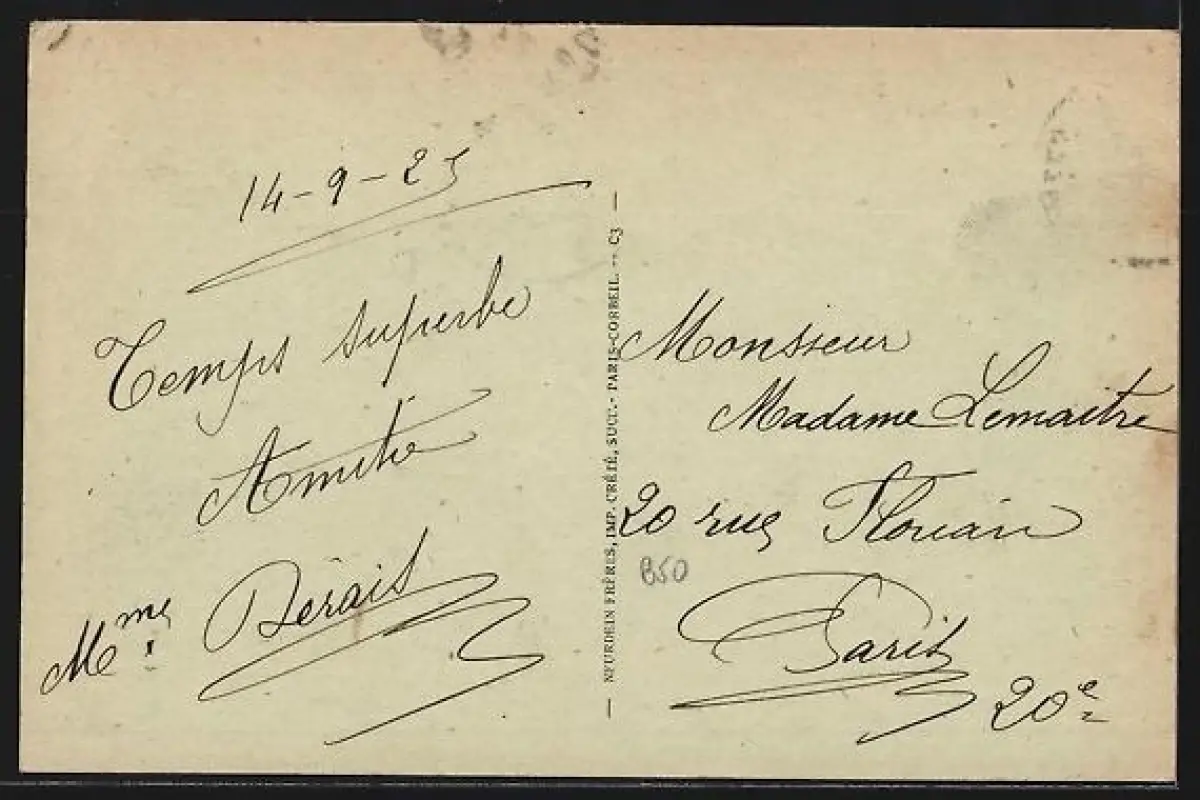 14-9-25
Temps superbe
Amitié
Mme Dérais
NEURDEIN FRÈRES, IMP. CRÉTÉ, SUCC. - PARIS-CORBEIL. -- C3
Monsieur
Madame Lemaitre
20 rue Florian
B50
Paris
20e